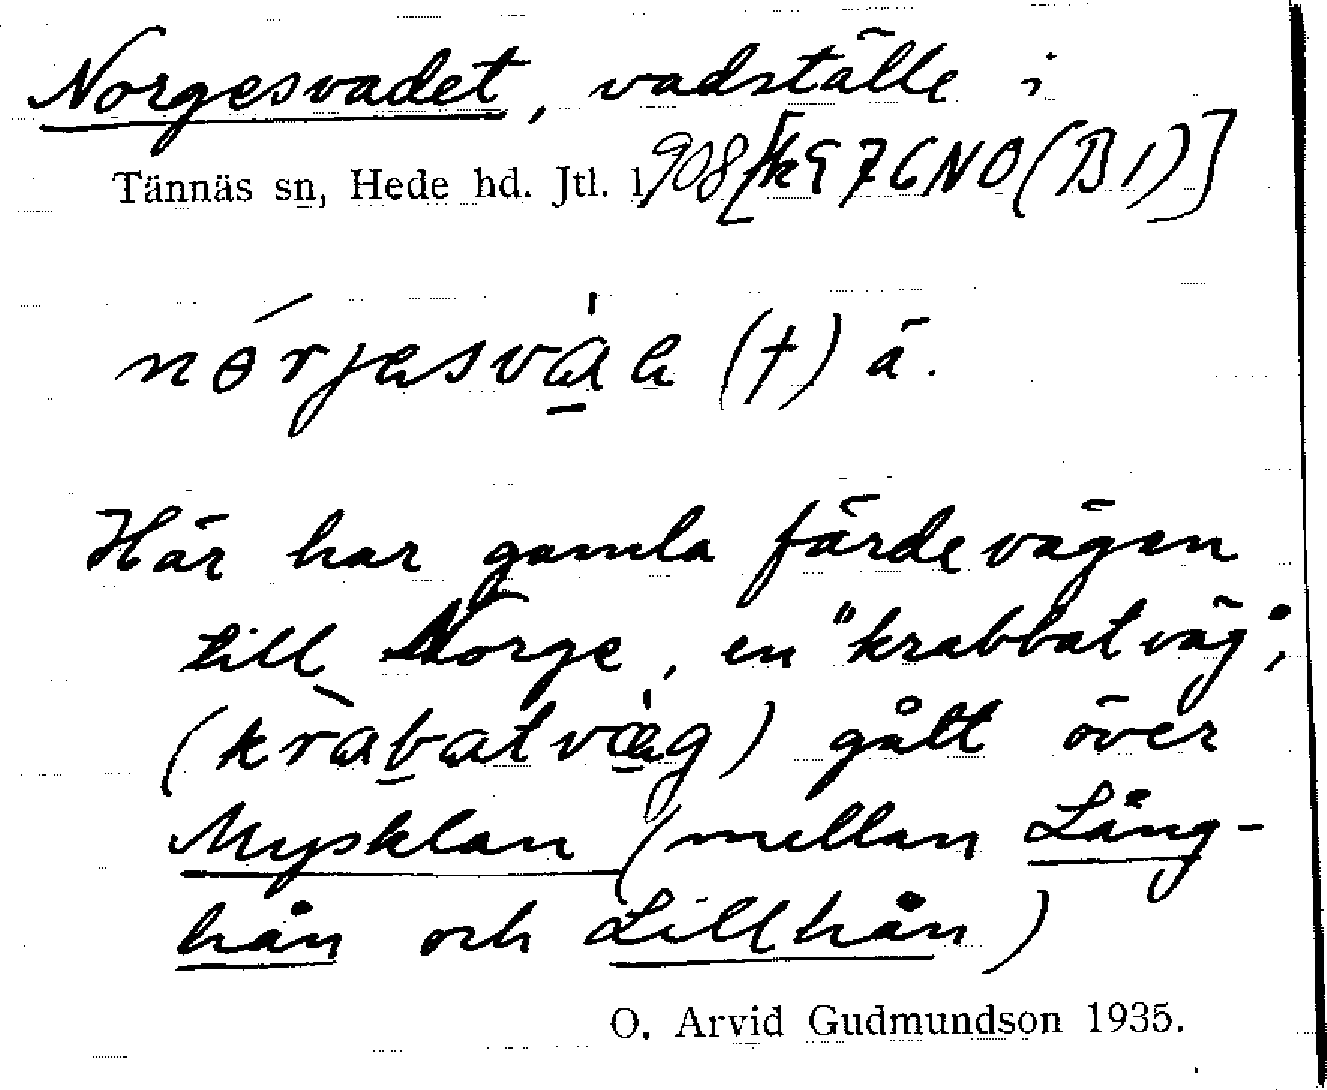 Norgesvadet, vadställe i
Tännäs sn, Hede hd. Jtl. l, 908 [k976NO(B1)]
nórjesvàa (†) ä.
Här har gamla färdevägen
till Norge, en "krabbatväg",
(kràbatvàg) gått över
Mysklan (mellan Lång-
hån och Lillhån)
O. Arvid Gudmundson 1935.